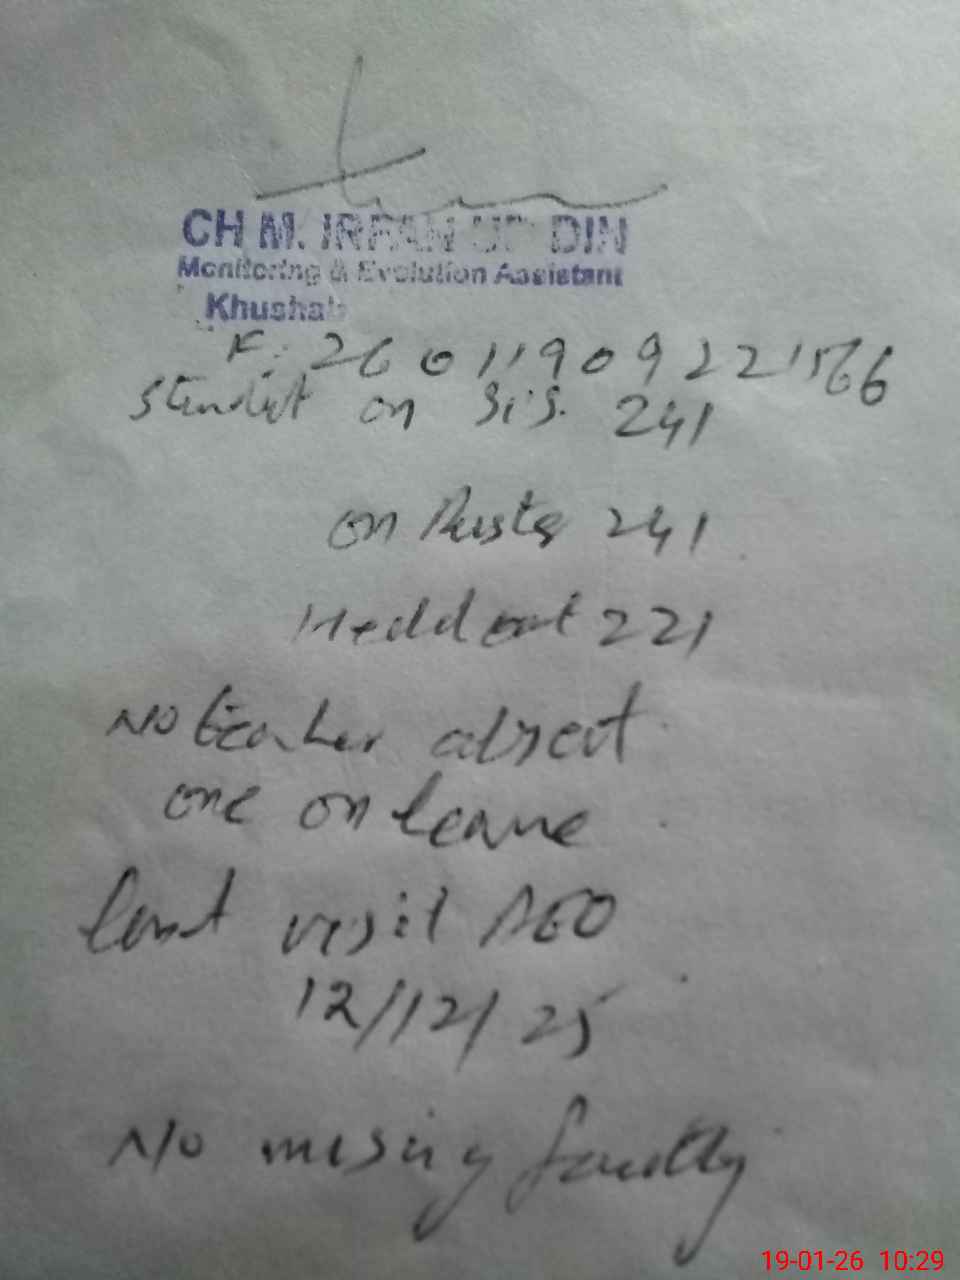 CH M. IRFAN UD DIN
Monitoring & Evolution Assistant
Khushab
F: 26011909221566
Student on SiS. 241
on Roster 241
Head count 221
No teacher absent
one on leave
last visit AEO
12/12/25
No missing facility
19-01-26 10:29